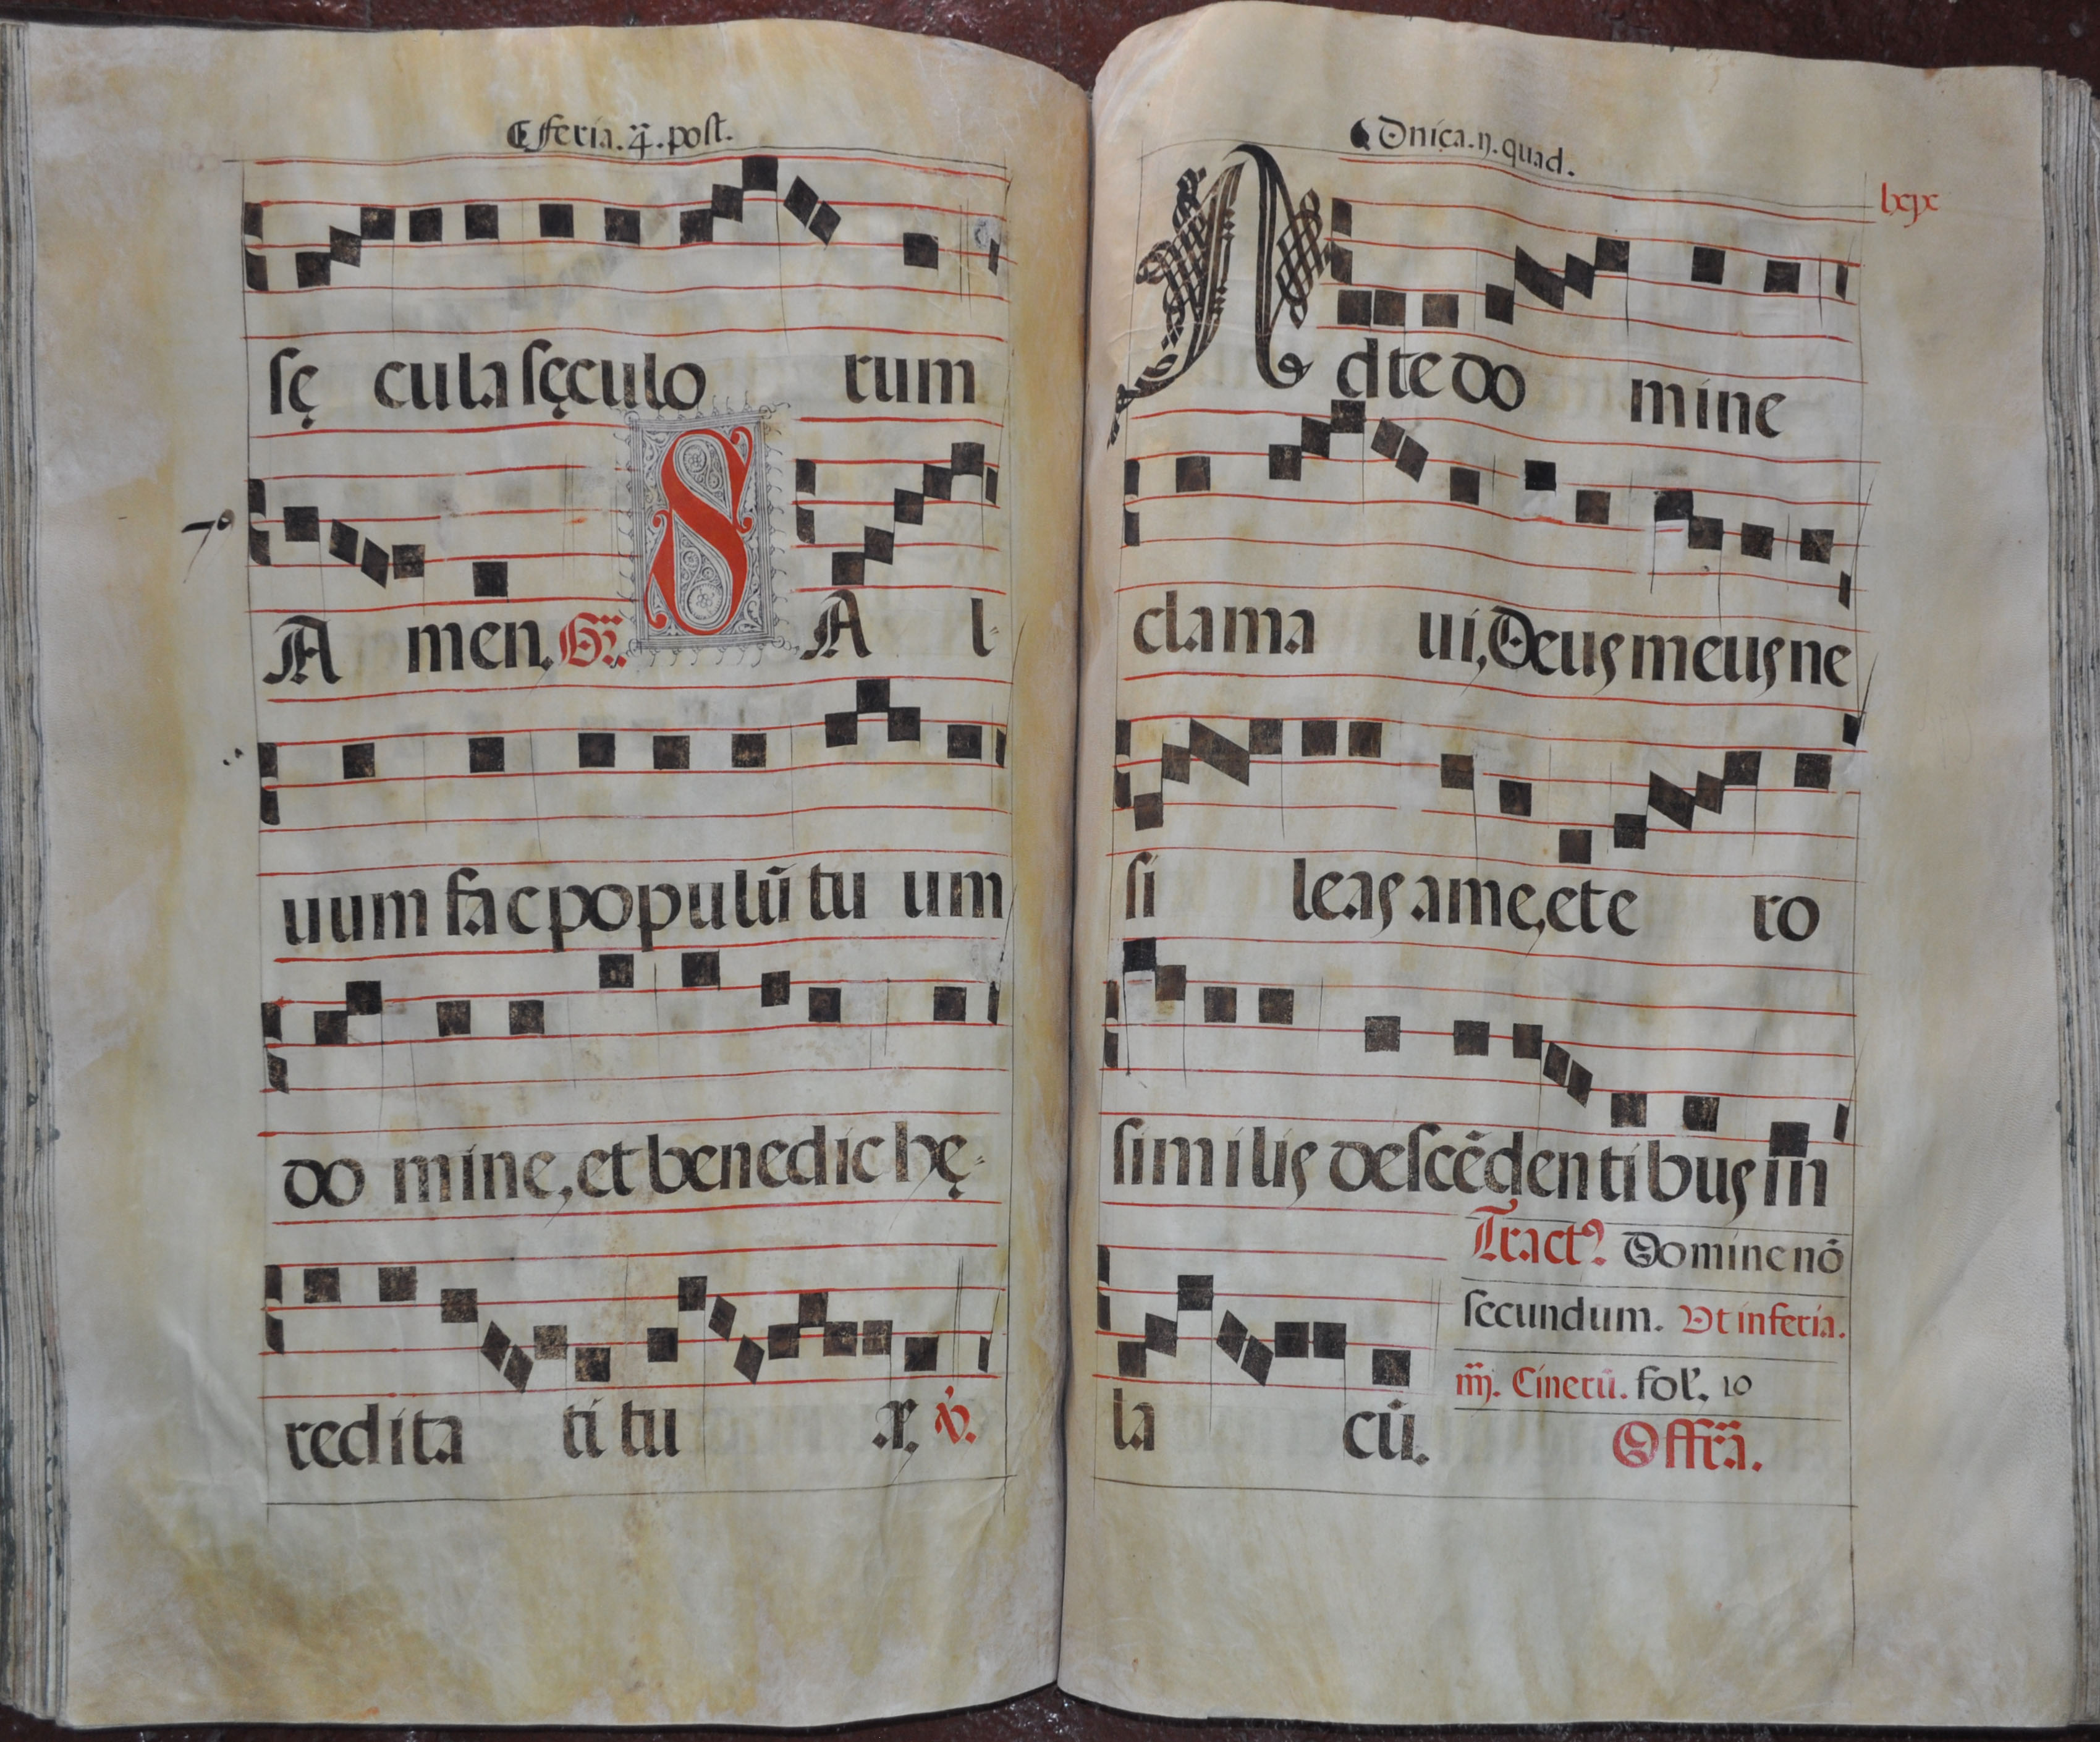 feria. 4. post.
sę cula sęculo rum
7º
A men. Gr. S A l-
uum fac populū tu um
do mine, et benedic hę-
redita ti tu æ. ℣.
Dnica. ij. quad.
lxix
A d te do mine
clama ui, Deus meus ne
si leas a me, et e ro
similis descēdentibus in
la cū.
Tractꝰ. Domine nō
secundum. Vt in feria.
iiij. Cinerū. fol. 10
Offrā.